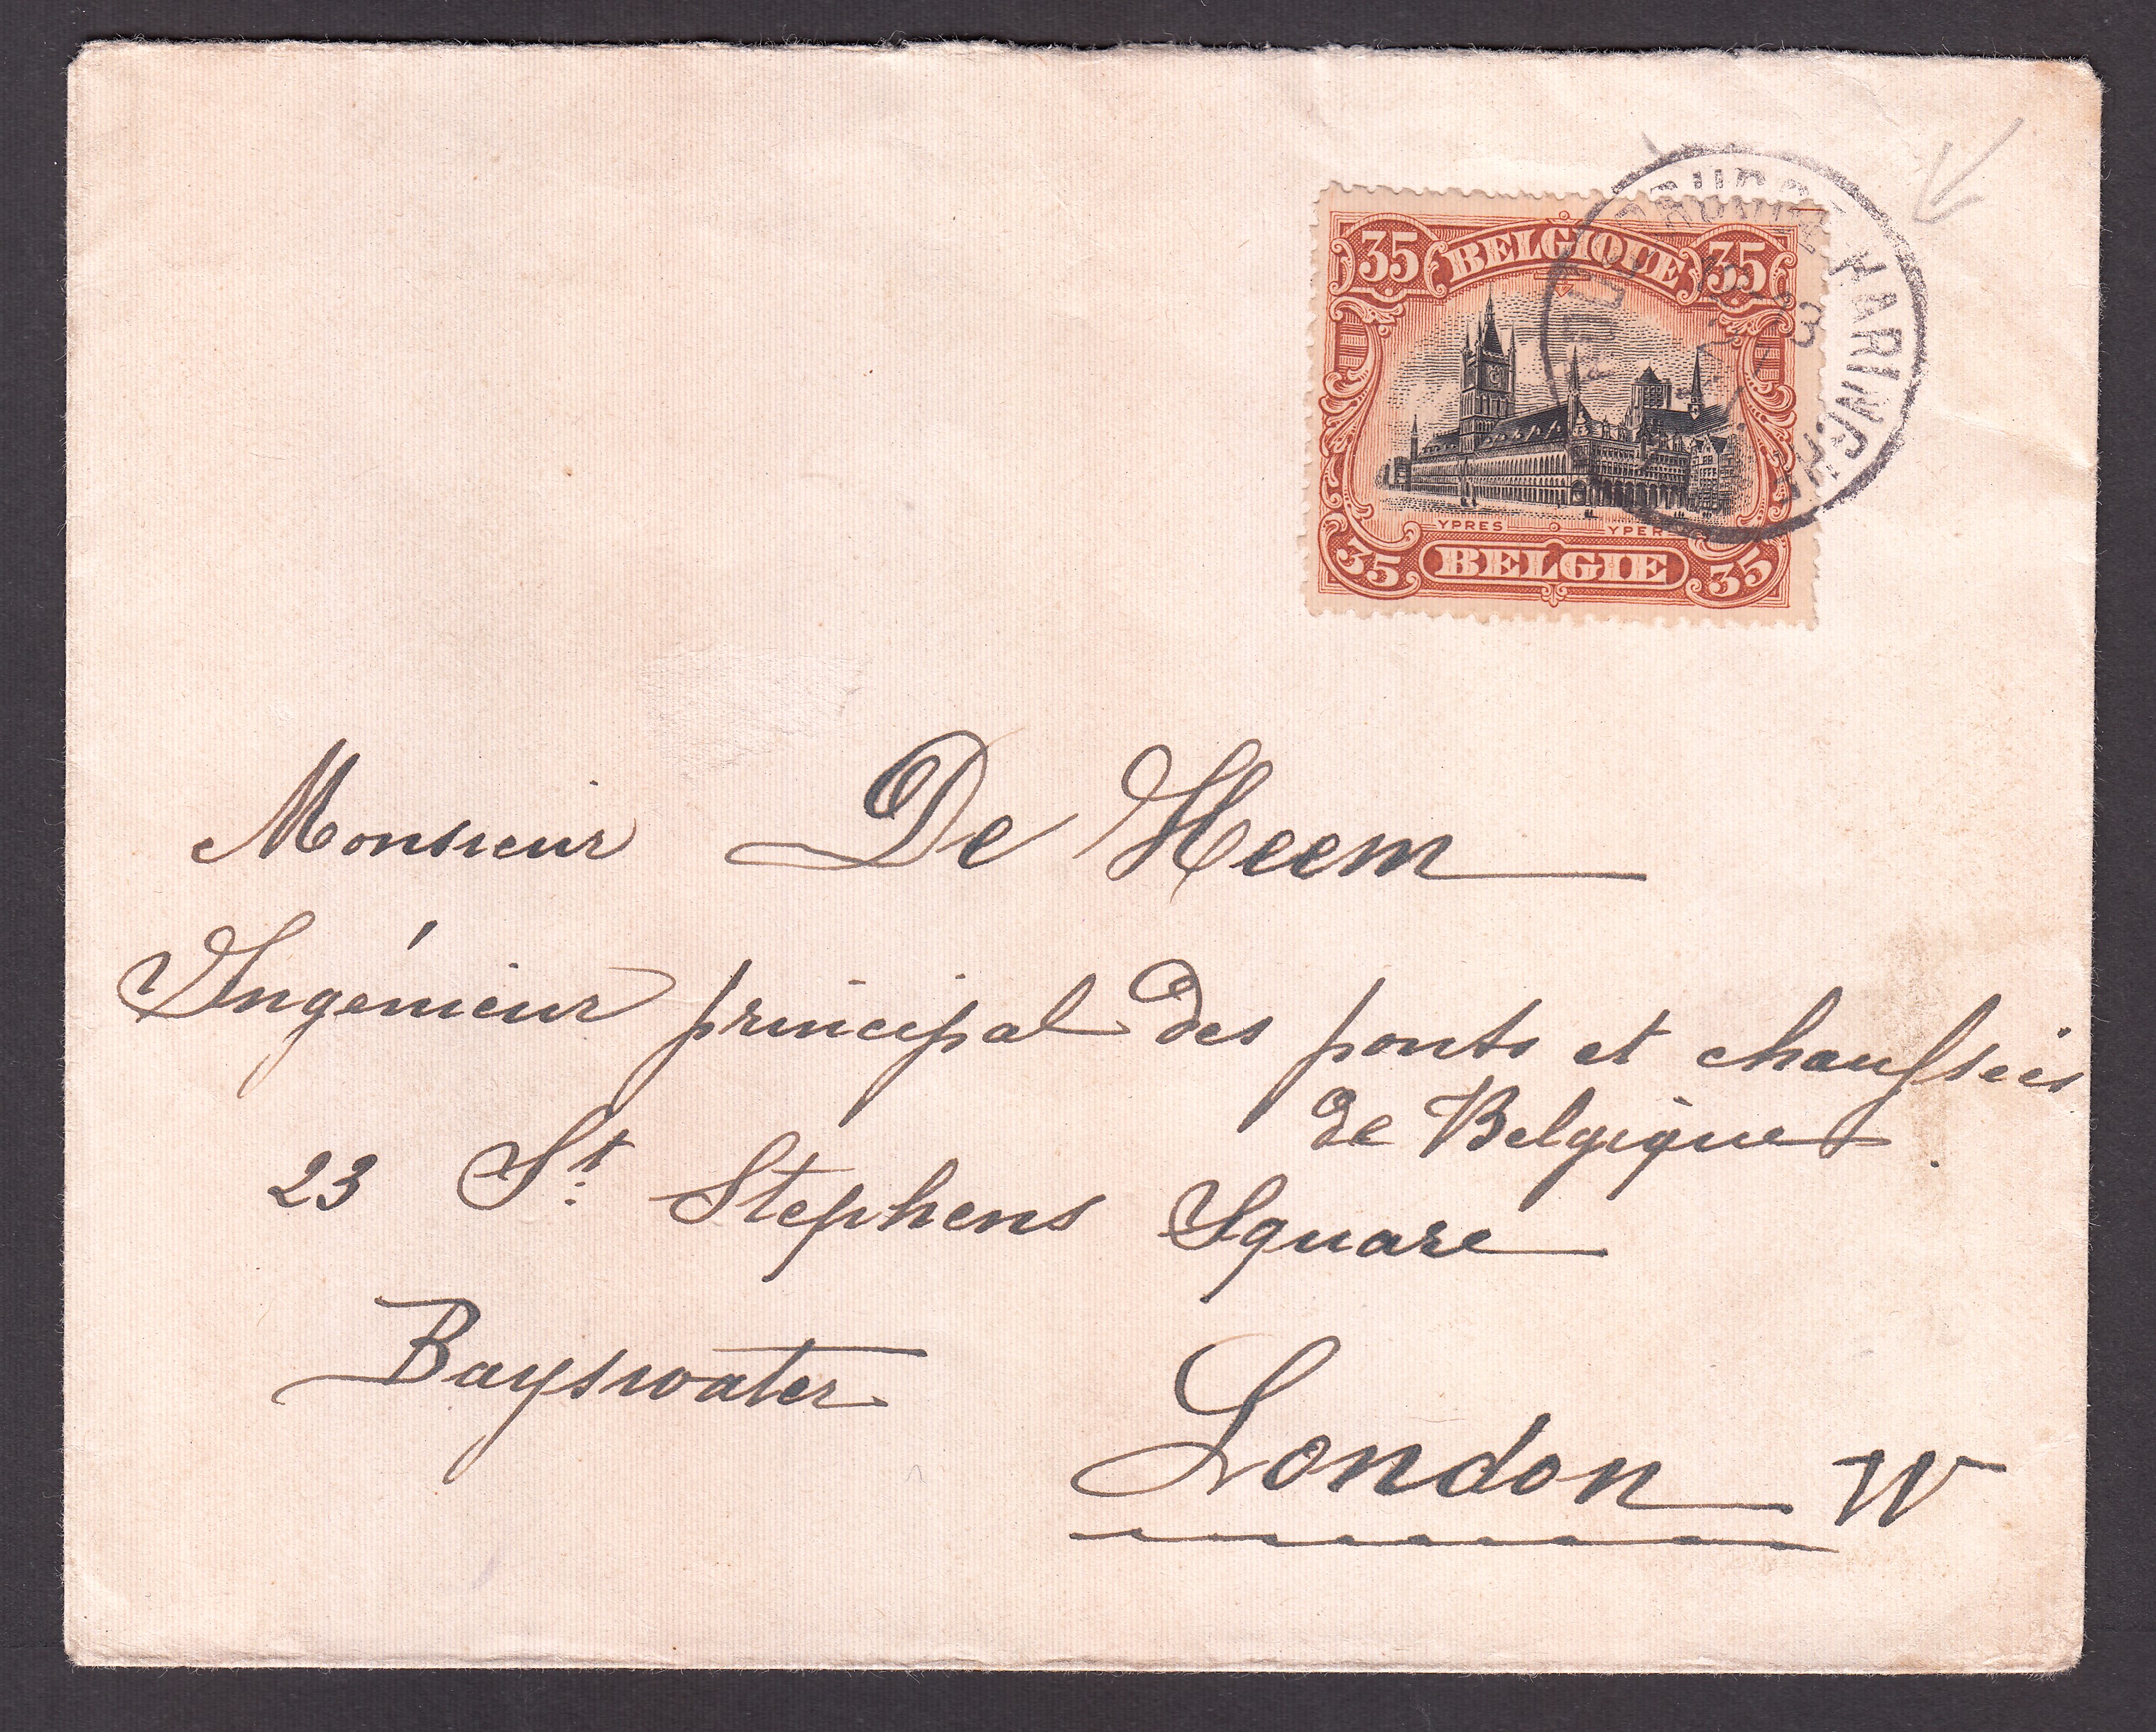 35 BELGIQUE 35
YPRES YPER
35 BELGIE 35
HARINGHE
Monsieur De Heem
Ingénieur principal des ponts et chaussées
de Belgique
23 St Stephens Square
Bayswater
London W